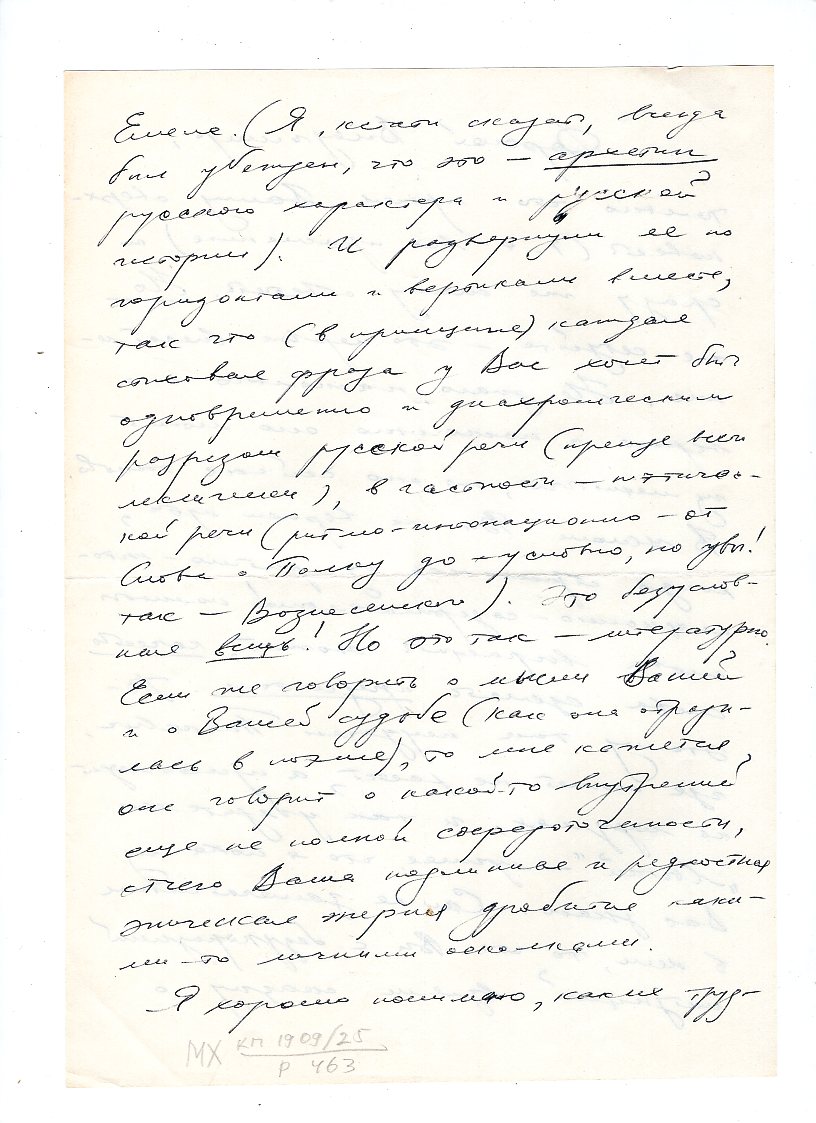 Емеле. (Я, кстати сказать, всегда
был убежден, что это – архетип
русского характера и русской
истории). И развернули ее по
горизонтали и вертикали вместе,
так что (в принципе) каждая
стиховая фраза у Вас хочет быть
одновременно и диахроническим
разрезом русской речи (прежде всего
лексически), в частности – поэтичес-
кой речи (ритмо-интонационно – от
Слова о Полку до – условно, но увы!
так – Вознесенского). Это безуслов-
ная вещь! Но это так – литературно.
Если же говорить о мысли Вашей
и о Вашей судьбе (как она отрази-
лась в поэме), то мне кажется,
она говорит о какой-то внутренней
еще не полной сосредоточенности,
отчего Ваша подлинная и редкостная
эпическая энергия дробится каки-
ми-то личными осколками.
Я хорошо понимаю, каких труд-
МХ КП 1909/25
Р 463